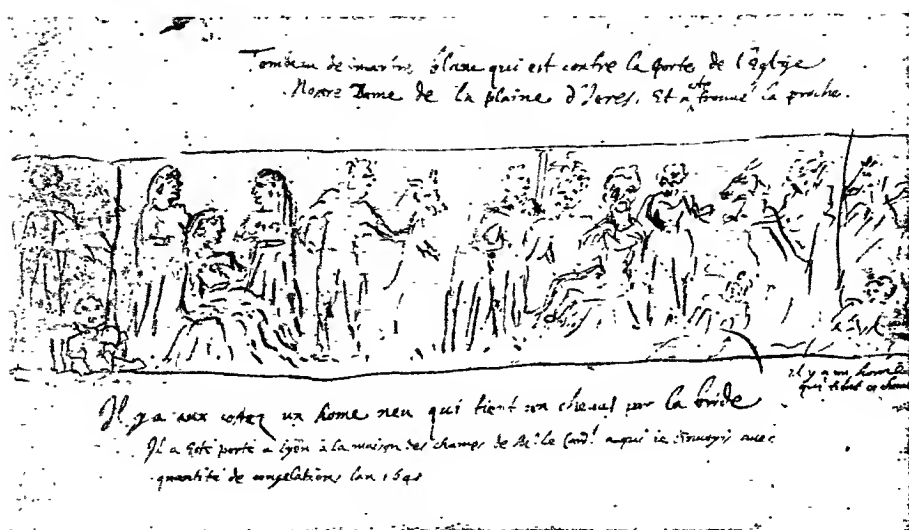 Tombeau de marbre blanc qui est contre la porte de l'Eglise
Nostre Dame de la plaine d'Ieres. Et a esté trouué la proche.
il y a un home
qui tient un cheual
Il y a aux costez un home neu qui tient son cheual par la bride
Il a esté porté a Lyon à la maison des champs de Mr le Card.l a qui ie l'enuoyis auec
quantité de congelations lan 164